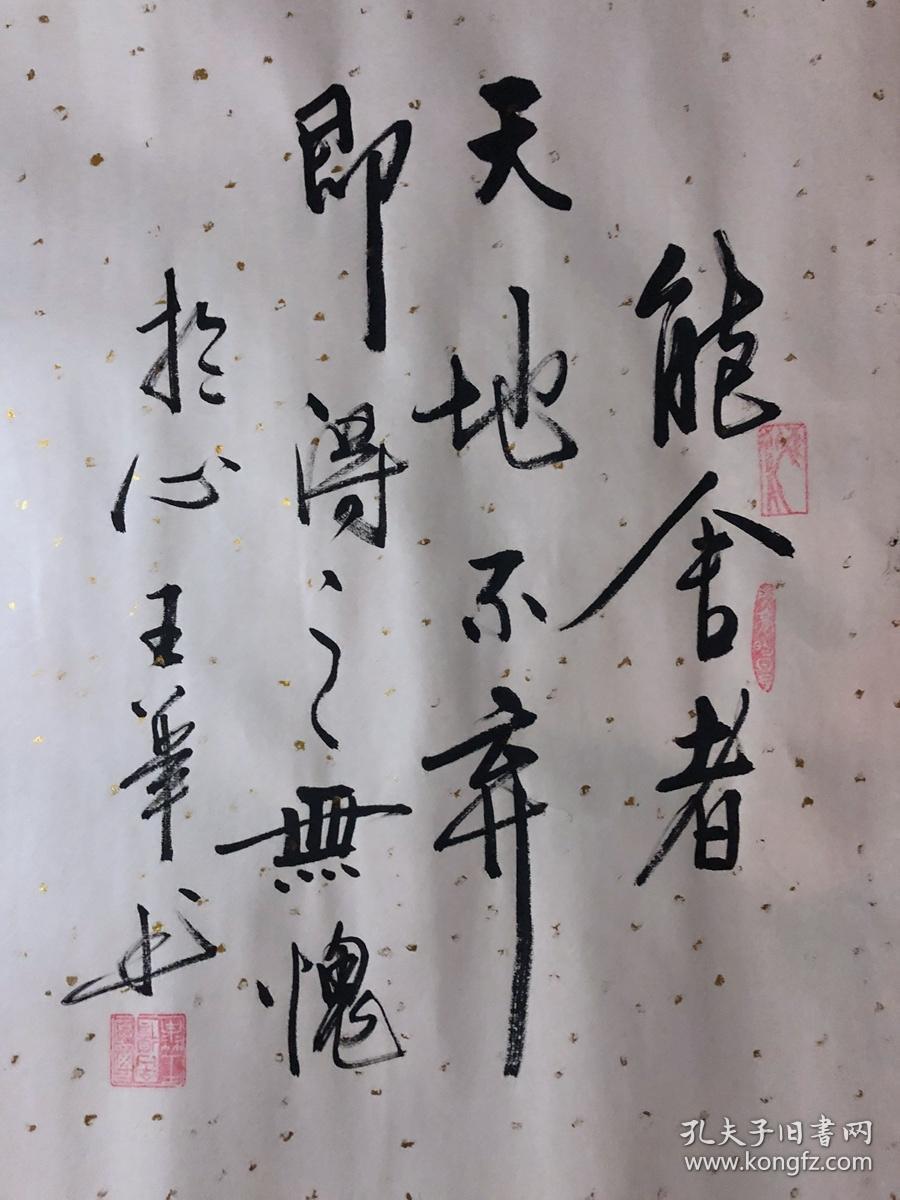 能舍者
天地不弃
即得之無愧
於心王華书
孔夫子旧書网
www.kongfz.com